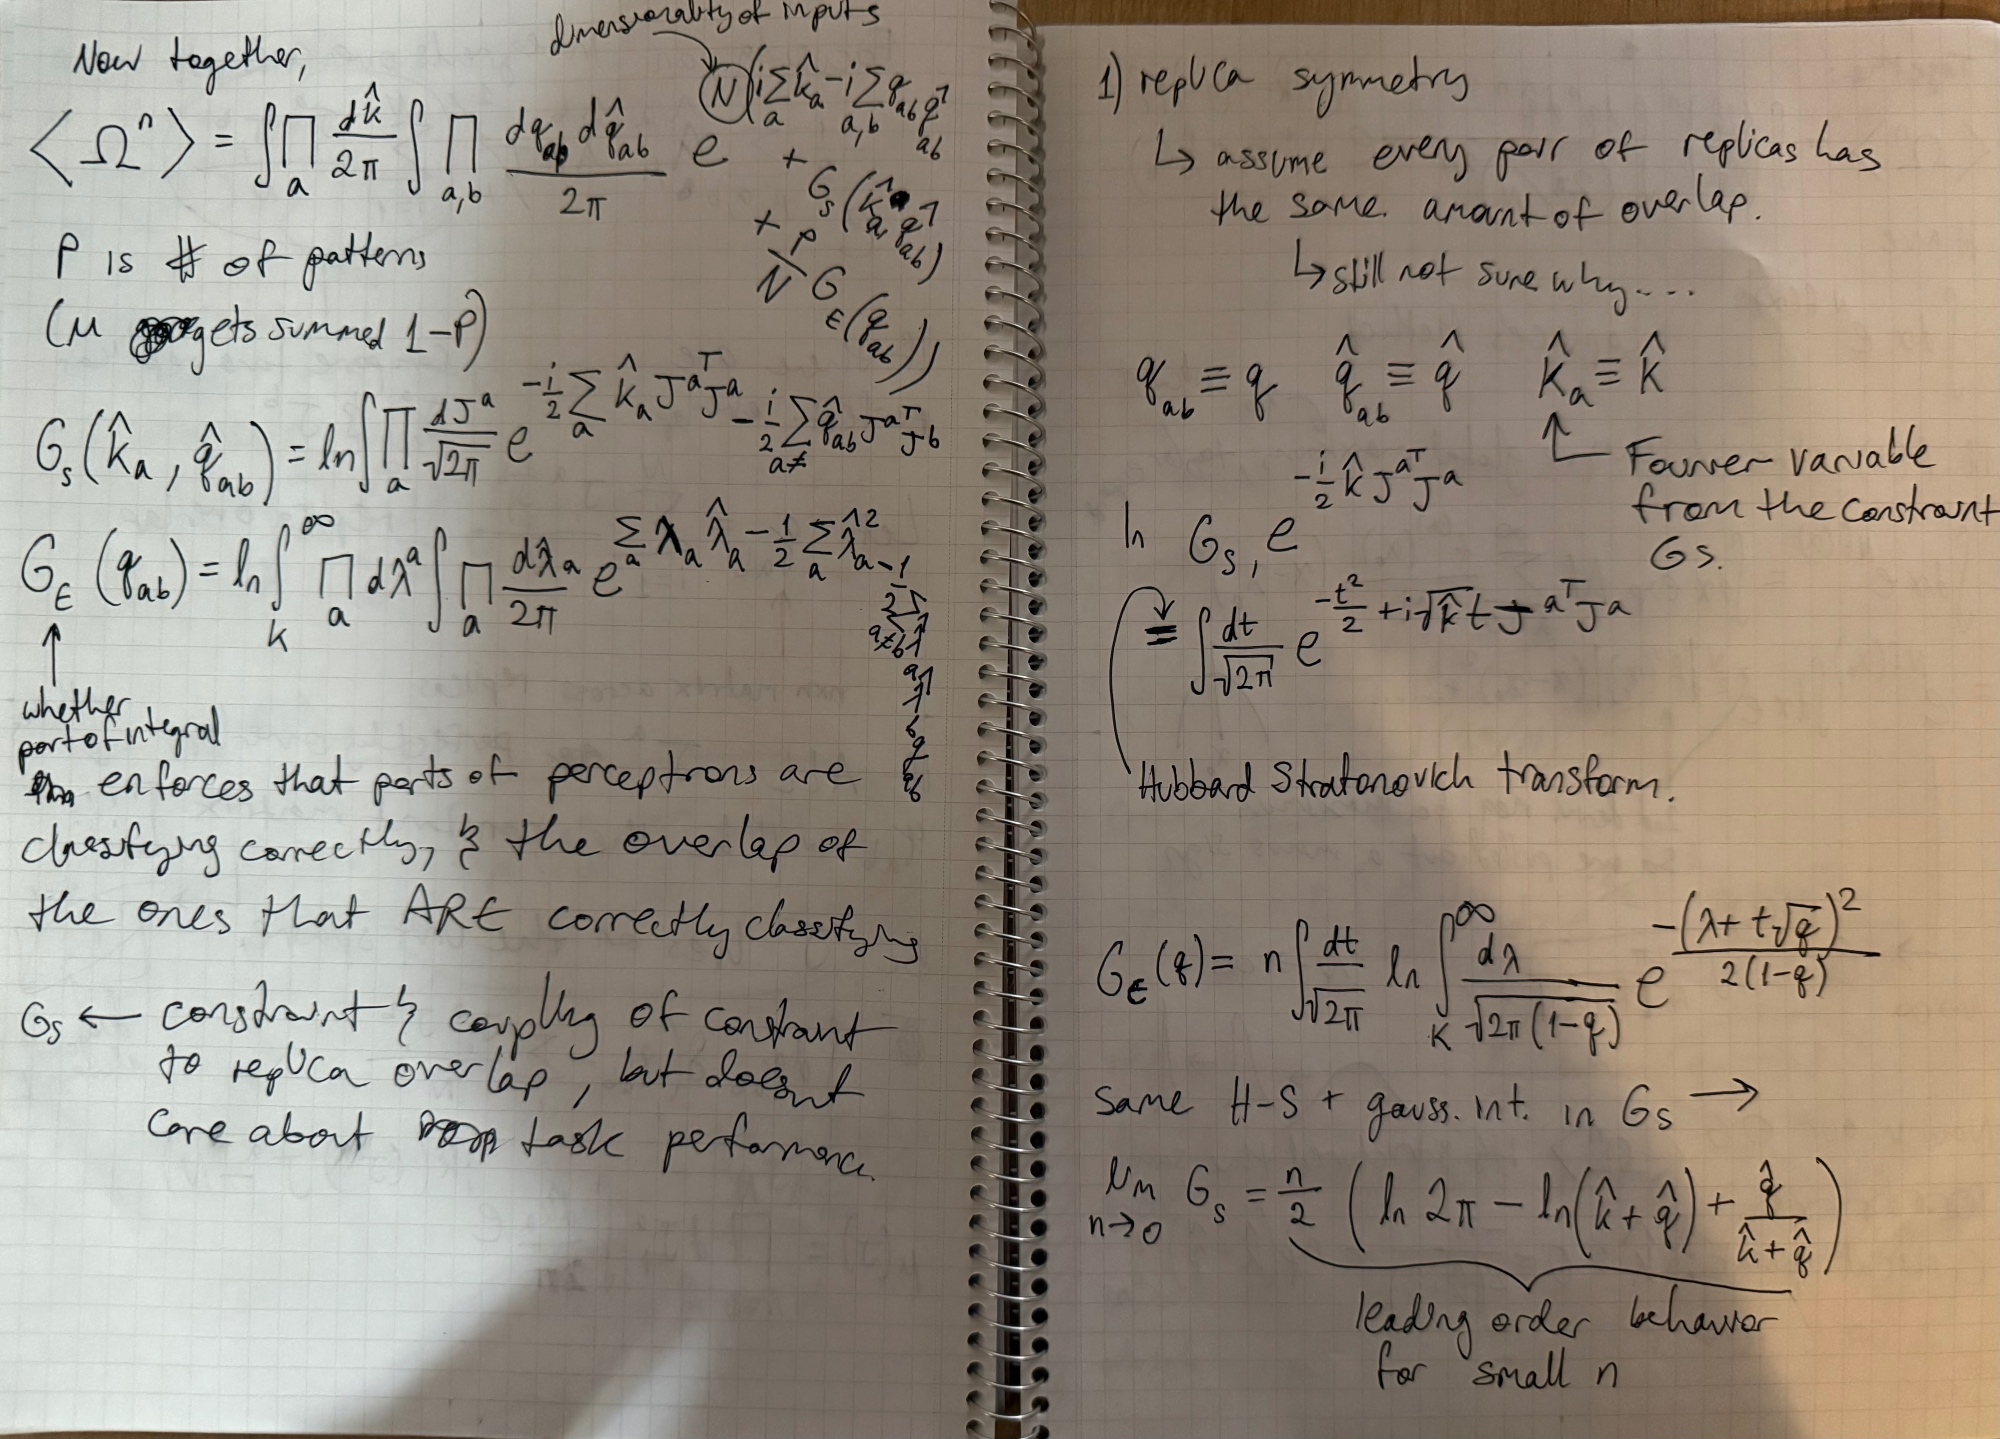 dimensionality of inputs
Now together,
⟨Ω^n⟩ = ∫∏_a dk̂/2π ∫∏_{a,b} dq_{ab} dq̂_{ab}/2π e^{N(i∑_a k̂_a - i∑_{a,b} q_{ab} q̂_{ab} + G_S(k̂_a, q̂_{ab}) + P/N G_E(q_{ab}))}
P is # of patterns
(μ gets summed 1-P)
G_S(k̂_a, q̂_{ab}) = ln∫∏_a dJ^a/√2π e^{-i/2 ∑_a k̂_a J^{aT}J^a - i/2 ∑_{a≠} q̂_{ab} J^{aT}J^b}
G_E(q_{ab}) = ln∫_K^∞ ∏_a dλ^a ∫∏_a dλ̂_a/2π e^{∑_a λ_a λ̂_a - 1/2 ∑_a λ̂_a^2 - 1/2 ∑_{a≠b} λ̂_a λ̂_b q_{ab}}
whether
part of integral
enforces that parts of perceptrons are
classifying correctly, & the overlap of
the ones that ARE correctly classifying
G_S ← constraint & coupling of constraint
to replica overlap, but doesnt
care about task performance.
1) replica symmetry
↳ assume every pair of replicas has
the same amount of overlap.
↳ still not sure why....
q_{ab} ≡ q q̂_{ab} ≡ q̂ k̂_a ≡ k̂
Fourier variable
from the constraint
G_S.
In G_S, e^{-i/2 k̂ J^{aT}J^a}
≡ ∫dt/√2π e^{-t²/2 + i√k̂ t J^{aT}J^a}
Hubbard Stratonovich transform.
G_E(q) = n∫dt/√2π ln∫_K^∞ dλ/√2π(1-q) e^{-(λ+t√q)²/2(1-q)}
same H-S + gauss. int. in G_S →
lim_{n→0} G_S = n/2 (ln 2π - ln(k̂+q̂) + q̂/(k̂+q̂))
leading order behavior
for small n